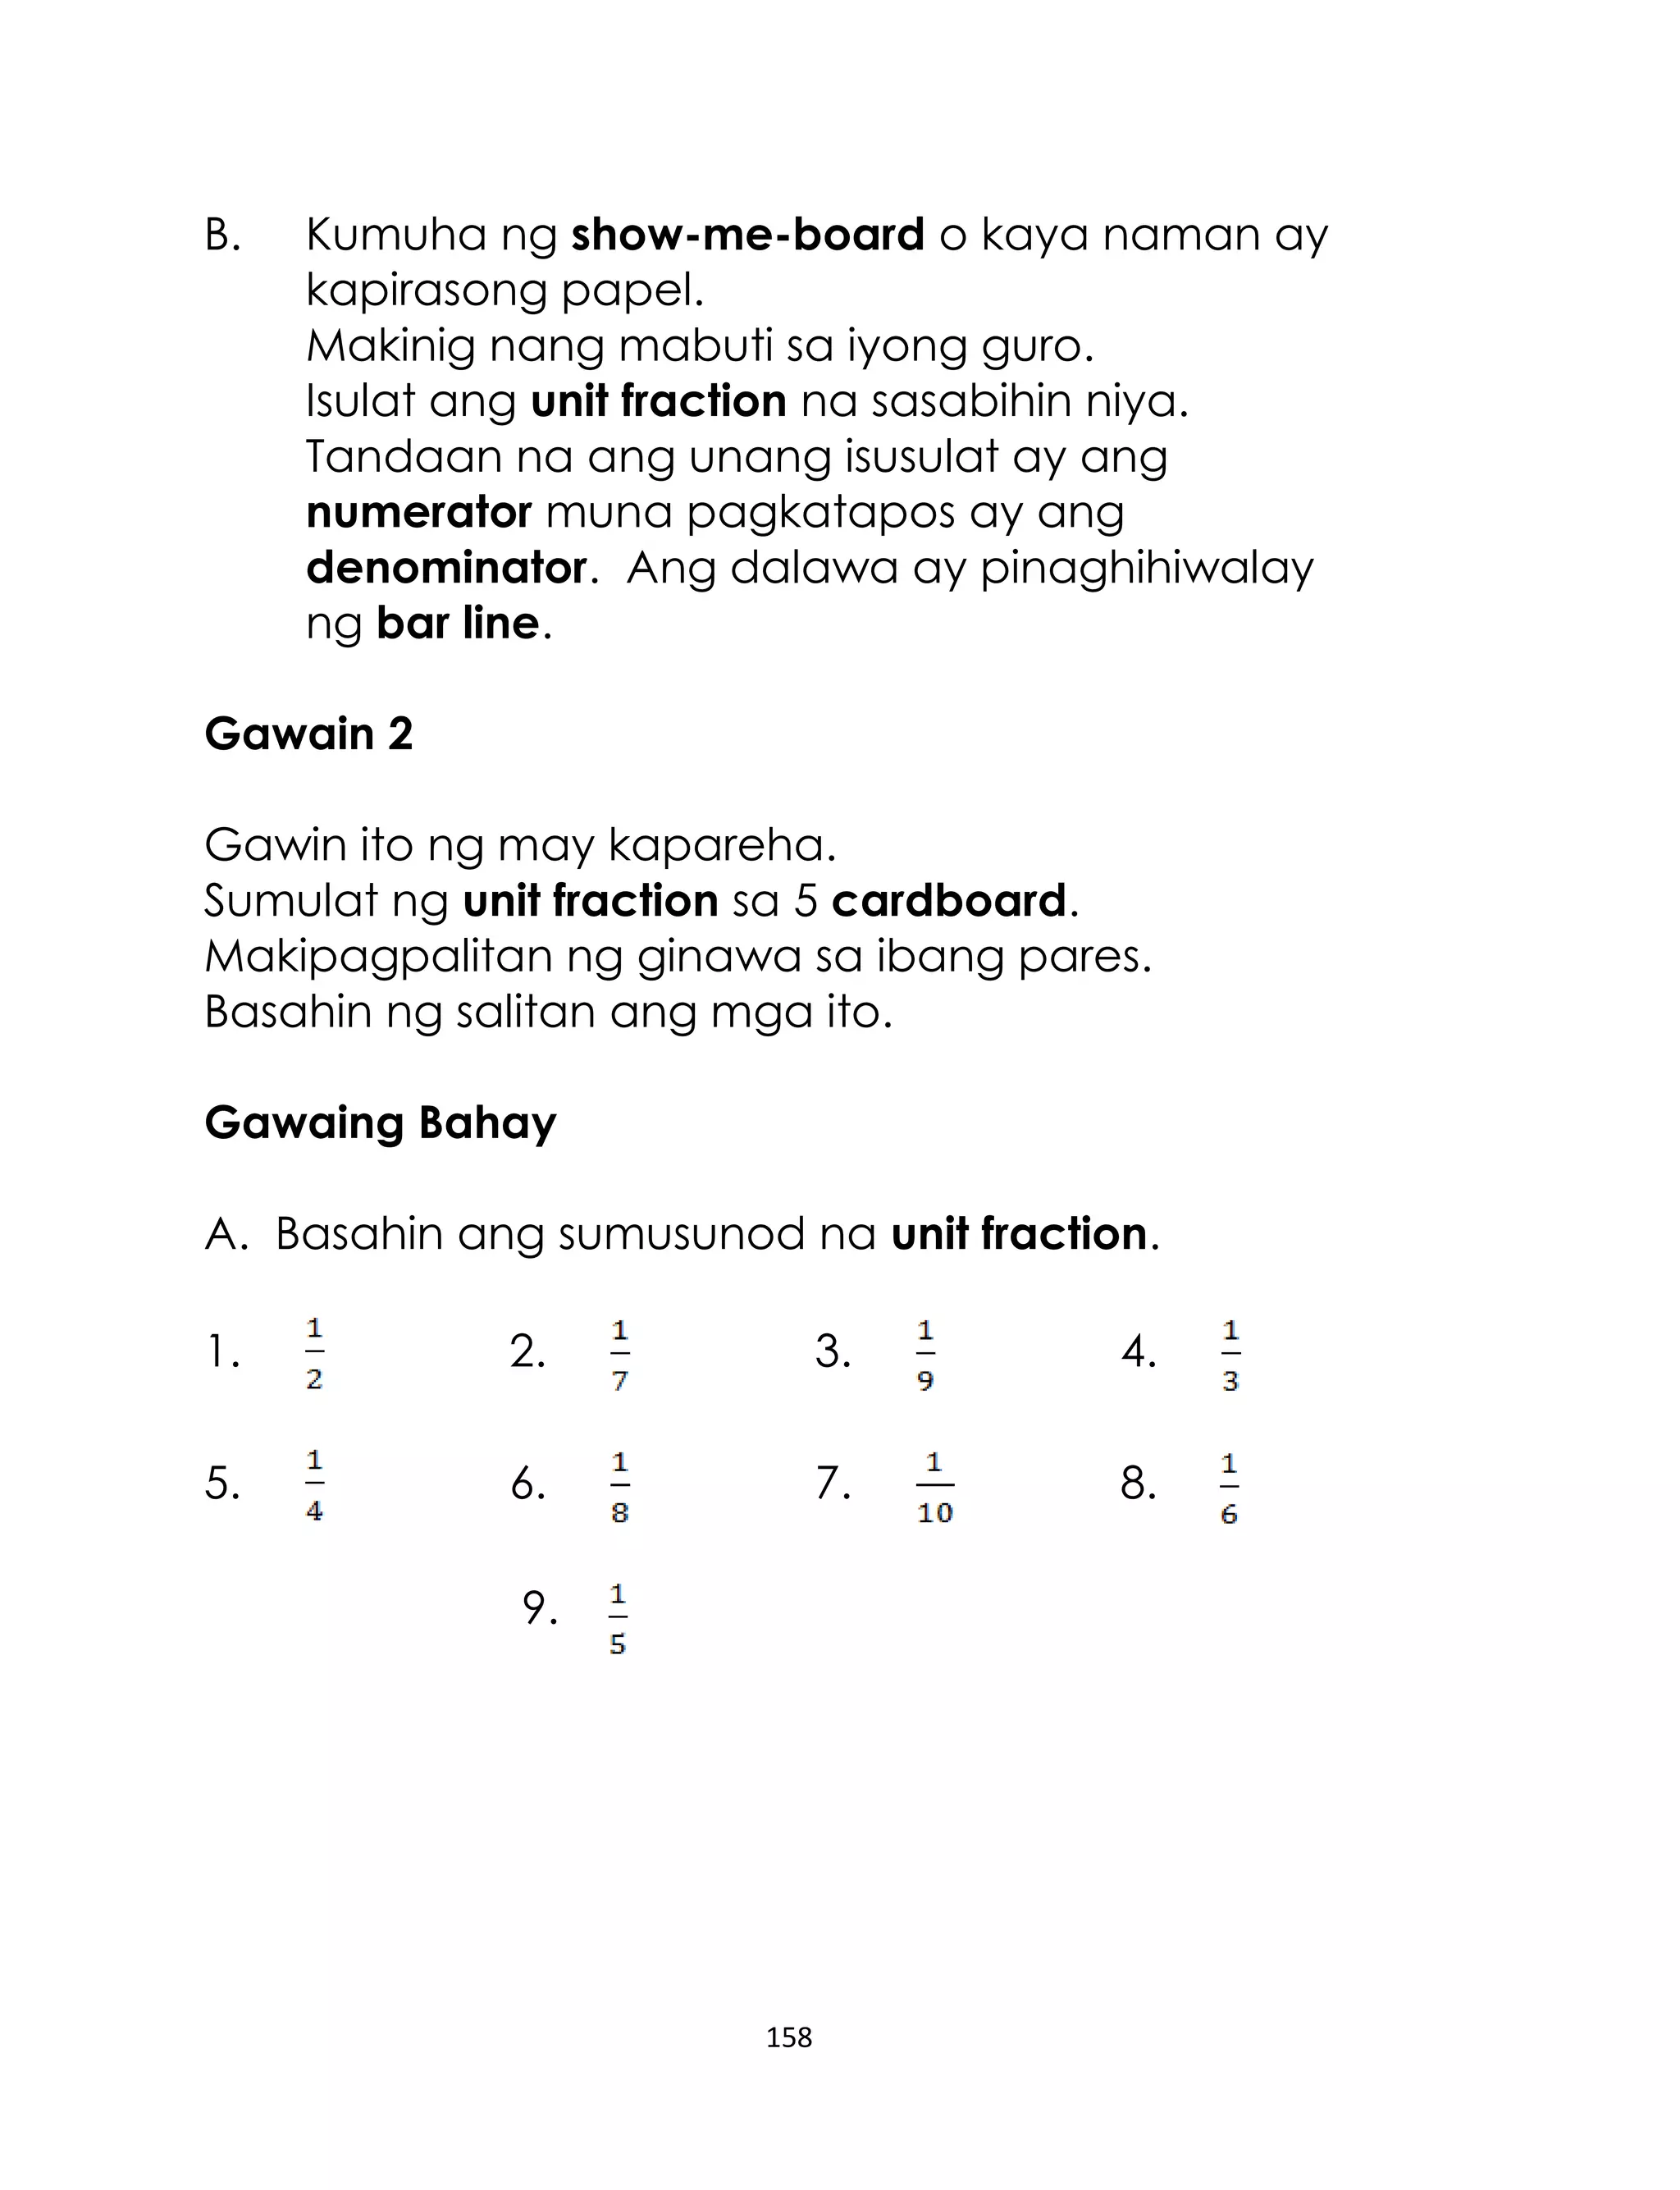 B. Kumuha ng show-me-board o kaya naman ay
kapirasong papel.
Makinig nang mabuti sa iyong guro.
Isulat ang unit fraction na sasabihin niya.
Tandaan na ang unang isusulat ay ang
numerator muna pagkatapos ay ang
denominator. Ang dalawa ay pinaghihiwalay
ng bar line.
Gawain 2
Gawin ito ng may kapareha.
Sumulat ng unit fraction sa 5 cardboard.
Makipagpalitan ng ginawa sa ibang pares.
Basahin ng salitan ang mga ito.
Gawaing Bahay
A. Basahin ang sumusunod na unit fraction.
1. 1/2 2. 1/7 3. 1/9 4. 1/3
5. 1/4 6. 1/8 7. 1/10 8. 1/6
9. 1/5
158